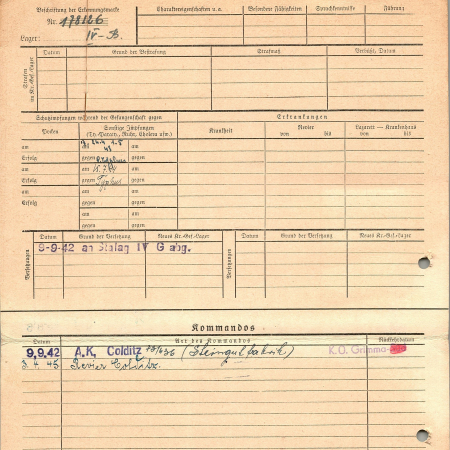 Beschriftung der Erkennungsmarke
Nr. 178126
Lager: IV-B.
Charaktereigenschaften u. a.
Besondere Fähigkeiten
Sprachkenntnisse
Führung
Strafen im Kr.-Gef.-Lager
Datum
Grund der Bestrafung
Strafmaß
Verbüßt, Datum
Schutzimpfungen während der Gefangenschaft gegen
Erkrankungen
Pocken
Sonstige Impfungen
(Ty.-Paraty., Ruhr, Cholera usw.)
Krankheit
Revier
von bis
Lazarett — Krankenhaus
von bis
am am
Erfolg gegen gegen
am am
Erfolg gegen Typhus gegen
am am am
Erfolg gegen gegen
am am
gegen gegen
Versetzungen
Datum
Grund der Versetzung
Neues Kr.-Gef.-Lager
Versetzungen
Datum
Grund der Versetzung
Neues Kr.-Gef.-Lager
9-9-42 an Stalag IV G abg.
Kommandos
Datum
Art des Kommandos
Rückkehrdatum
9.9.42 A.K. Colditz (Steingutfabrik) K.O. Grimma
3. 4. 45 Revier Colditz.